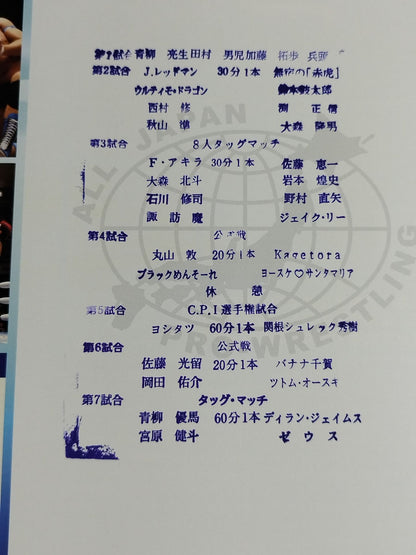 第1試合 青柳 亮生 田村 男児 加藤 拓歩 兵頭
第2試合 J.レッドマン 30分1本 無宿の「赤虎」
ウルティモ・ドラゴン 鈴木敬太郎
西村 修 渕 正信
秋山 準 大森 隆男
第3試合 8人タッグマッチ
F・アキラ 30分1本 佐藤 恵一
大森 北斗 岩本 煌史
石川 修司 野村 直矢
諏訪 魔 ジェイク・リー
第4試合 公式戦
丸山 敦 20分1本 Kagetora
ブラックめんそーれ ヨースケ♡サンタマリア
休 憩
第5試合 C.P.I選手権試合
ヨシタツ 60分1本 関根シュレック秀樹
第6試合 公式戦
佐藤 光留 20分1本 バナナ千賀
岡田 佑介 ツトム・オースギ
第7試合 タッグ・マッチ
青柳 優馬 60分1本 ディラン・ジェイムス
宮原 健斗 ゼウス
ALL JAPAN
PRO WRESTLING